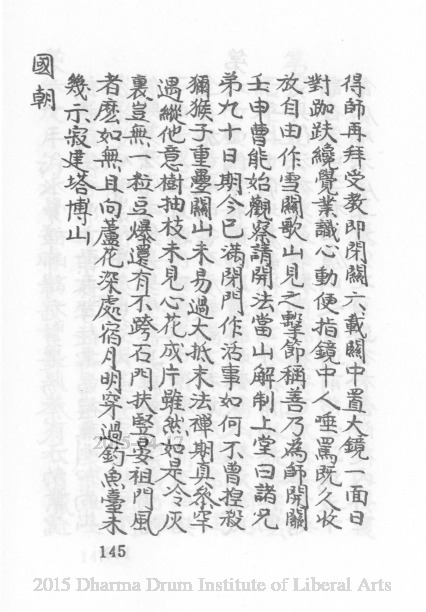 得師再拜受教即閉關六載關中置大鏡一面日
對跏趺纔覺業識心動便指鏡中人唾罵既久收
放自由作雪關歌山見之擊節稱善乃為師開關
壬申曹能始觀察請開法當山解制上堂曰諸兄
弟九十日期今已滿閉門作活事如何不曾揑殺
獼猴子重疊關山未易過大抵末法禪期真參罕
遇縱他意樹抽枝未見心花成片雖然如是冷灰
裏豈無一粒豆爆還有不跨石門扶豎晏祖門風
者麼如無且向蘆花深處宿月明穿過釣魚臺未
幾示寂建塔博山
國朝
145
2015 Dharma Drum Institute of Liberal Arts